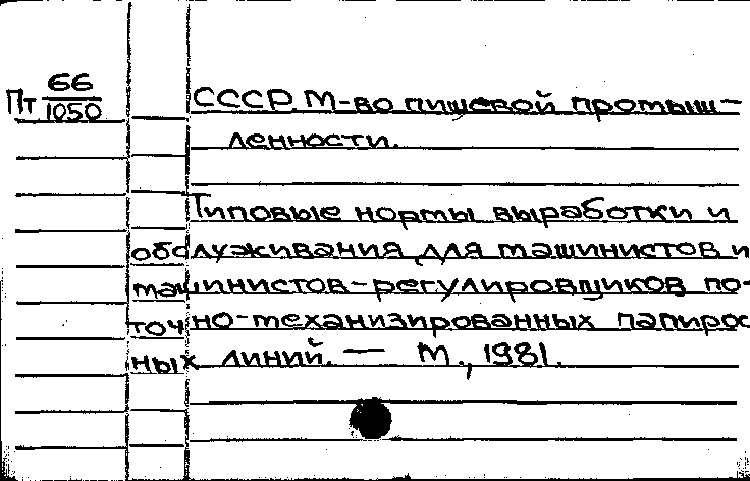 Пт 66/1050
СССР. М-во пищевой промыш-
ленности.
Типовые нормы выработки и
обслуживания для машинистов и
машинистов-регулировщиков по-
точно-механизированных папирос
ных линий. — М., 1981.